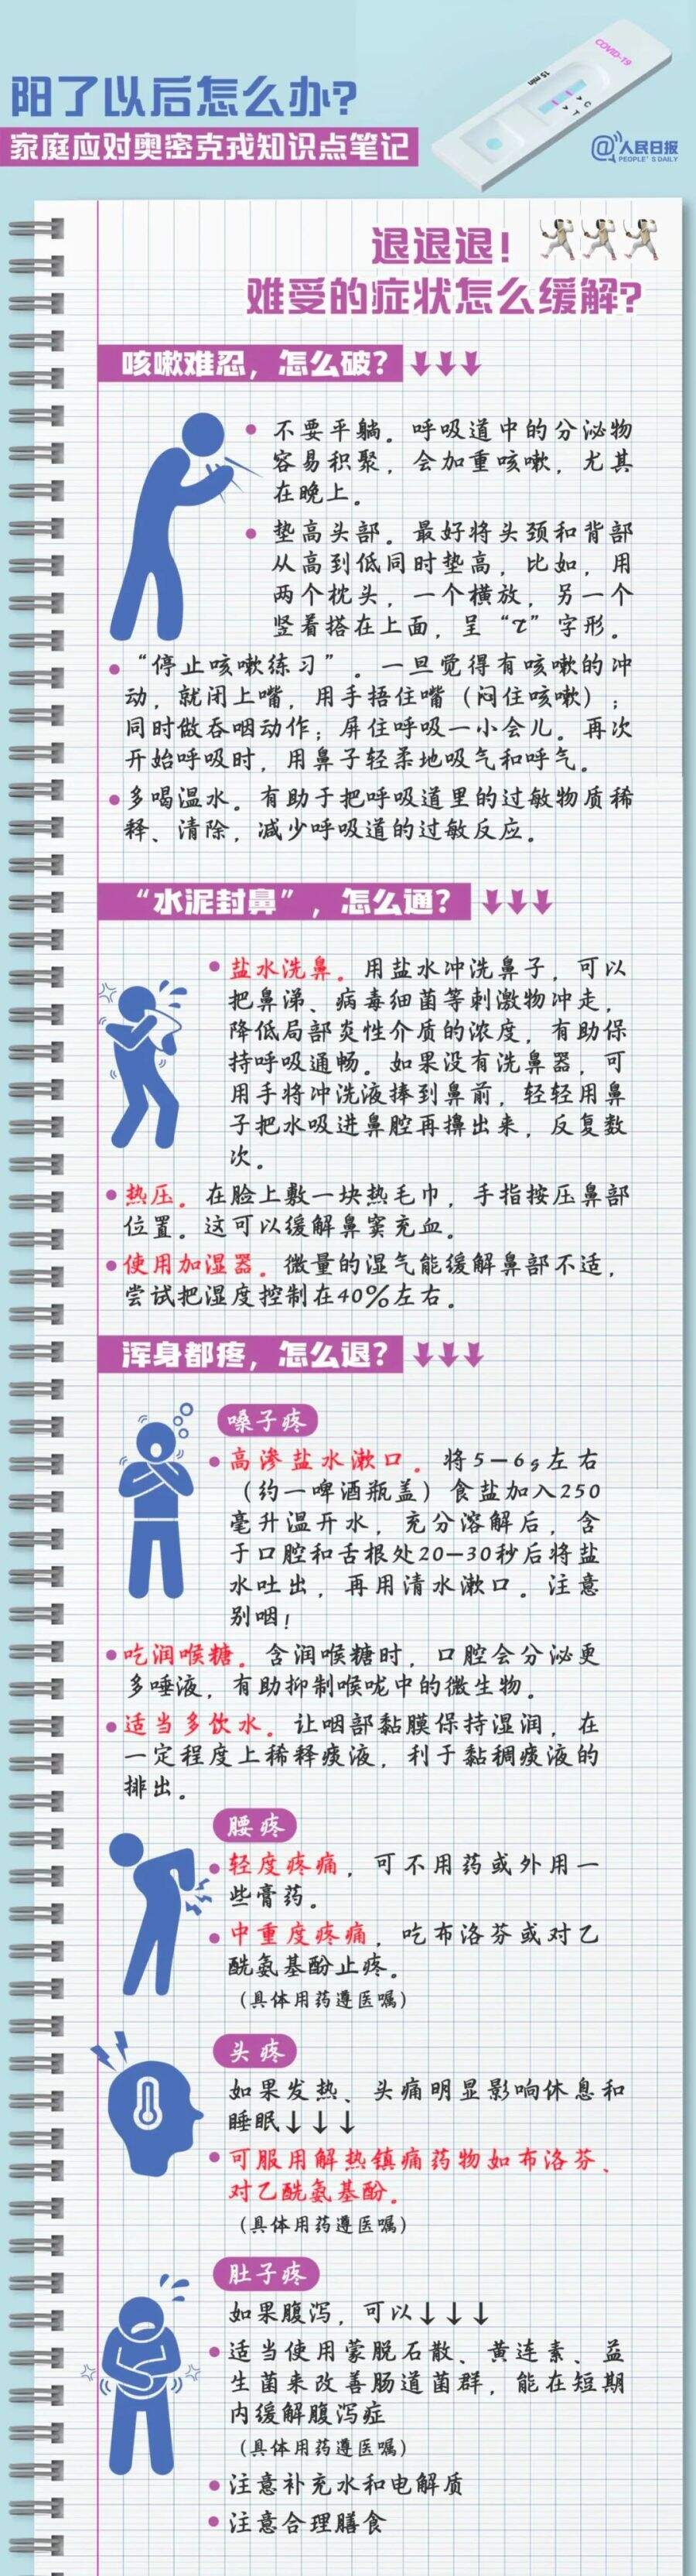 阳了以后怎么办?
家庭应对奥密克戎知识点笔记
COVID-19
15 min
C
T
@人民日报
PEOPLE'S DAILY
退退退!
难受的症状怎么缓解?
咳嗽难忍，怎么破?
不要平躺。呼吸道中的分泌物
容易积聚，会加重咳嗽，尤其
在晚上。
垫高头部。最好将头颈和背部
从高到低同时垫高，比如，用
两个枕头，一个横放，另一个
竖着搭在上面，呈“T”字形。
“停止咳嗽练习”。一旦觉得有咳嗽的冲
动，就闭上嘴，用手捂住嘴（闷住咳嗽）；
同时做吞咽动作；屏住呼吸一小会儿。再次
开始呼吸时，用鼻子轻柔地吸气和呼气。
多喝温水。有助于把呼吸道里的过敏物质稀
释、清除，减少呼吸道的过敏反应。
“水泥封鼻”，怎么通?
盐水洗鼻。用盐水冲洗鼻子，可以
把鼻涕、病毒细菌等刺激物冲走，
降低局部炎性介质的浓度，有助保
持呼吸通畅。如果没有洗鼻器，可
用手将冲洗液捧到鼻前，轻轻用鼻
子把水吸进鼻腔再擤出来，反复数
次。
热压。在脸上敷一块热毛巾，手指按压鼻部
位置。这可以缓解鼻窦充血。
使用加湿器。微量的湿气能缓解鼻部不适，
尝试把湿度控制在40%左右。
浑身都疼，怎么退?
嗓子疼
高渗盐水漱口。将5—6g左右
（约一啤酒瓶盖）食盐加入250
毫升温开水，充分溶解后，含
于口腔和舌根处20—30秒后将盐
水吐出，再用清水漱口。注意
别咽!
吃润喉糖。含润喉糖时，口腔会分泌更
多唾液，有助抑制喉咙中的微生物。
适当多饮水。让咽部黏膜保持湿润，在
一定程度上稀释痰液，利于黏稠痰液的
排出。
腰疼
轻度疼痛，可不用药或外用一
些膏药。
中重度疼痛，吃布洛芬或对乙
酰氨基酚止疼。
（具体用药遵医嘱）
头疼
如果发热、头痛明显影响休息和
睡眠↓↓↓
可服用解热镇痛药物如布洛芬、
对乙酰氨基酚。
（具体用药遵医嘱）
肚子疼
如果腹泻，可以↓↓↓
适当使用蒙脱石散、黄连素、益
生菌来改善肠道菌群，能在短期
内缓解腹泻症
（具体用药遵医嘱）
注意补充水和电解质
注意合理膳食